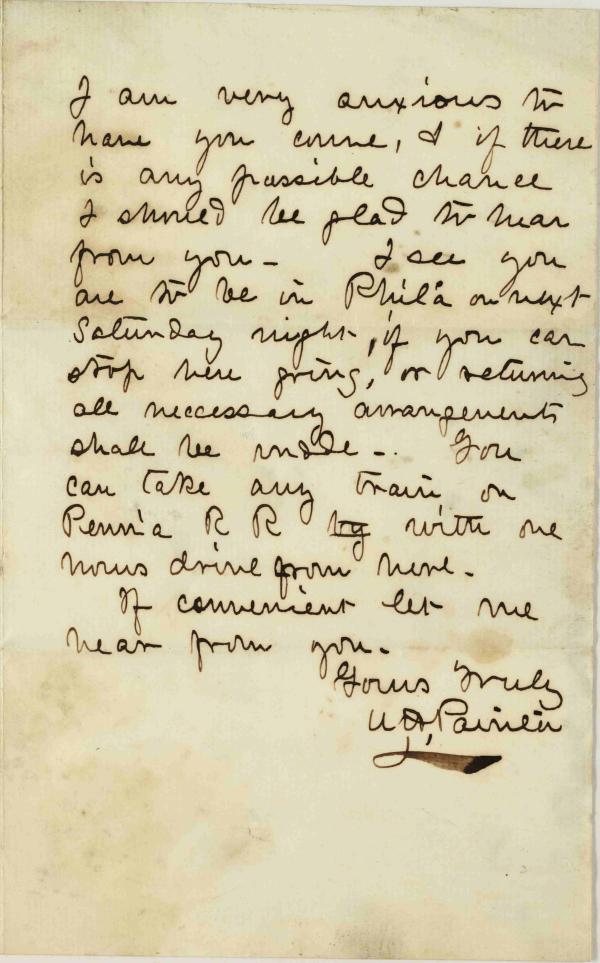 I am very anxious to
have you come, & if there
is any possible chance
I should be glad to hear
from you - I see you
are to be in Phil'a on next
Saturday night, if you can
stop here going, or returning
all neccessary arrangements
shall be made -. You
can take any train on
Penn'a R R by with one
hours drive from here.
If convenient let me
hear from you.
Yours Truly
U H, Painter